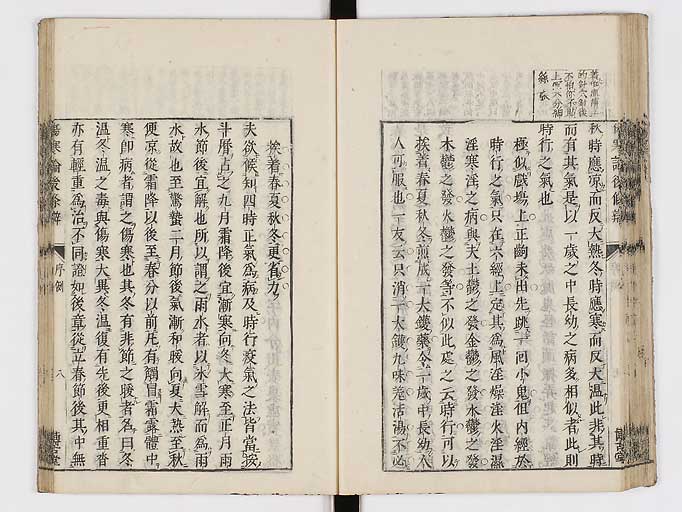 秋時應涼而反大熱冬時應寒而反大温此非其時
而有其氣是以一歲之中長幼之病多相似者此則
時行之氣也
極似戲場上正齣未田先跳一回小鬼但内經於
時行之氣只在六經上定其爲風淫燥淫火淫濕
淫寒淫之病與夫土鬱之發金鬱之發水鬱之發
木鬱之發火鬱之發等不似此處之云時行可以
挨着春夏秋冬煎成一大鑊藥令一歲中長幼人
人可服也一友云只消一大鑊九味羌活湯不必
挨着春夏秋冬更省力
夫欲候知四時正氣爲病及時行疫氣之法皆當按
斗曆占之九月霜降後宜漸寒向冬大寒至正月雨
水節後宜解也所以謂之雨水者以冰雪解而爲雨
水故也至驚蟄二月節後氣漸和暖向夏大熱至秋
便涼從霜降以後至春分以前凡有觸冒霜露體中
寒即病者謂之傷寒也其冬有非節之暖者名曰冬
温冬温之毒與傷寒大異冬温復有先後更相重沓
亦有輕重爲治不同證如後章從立春節後其中無
傷寒論後條辨
序例
八